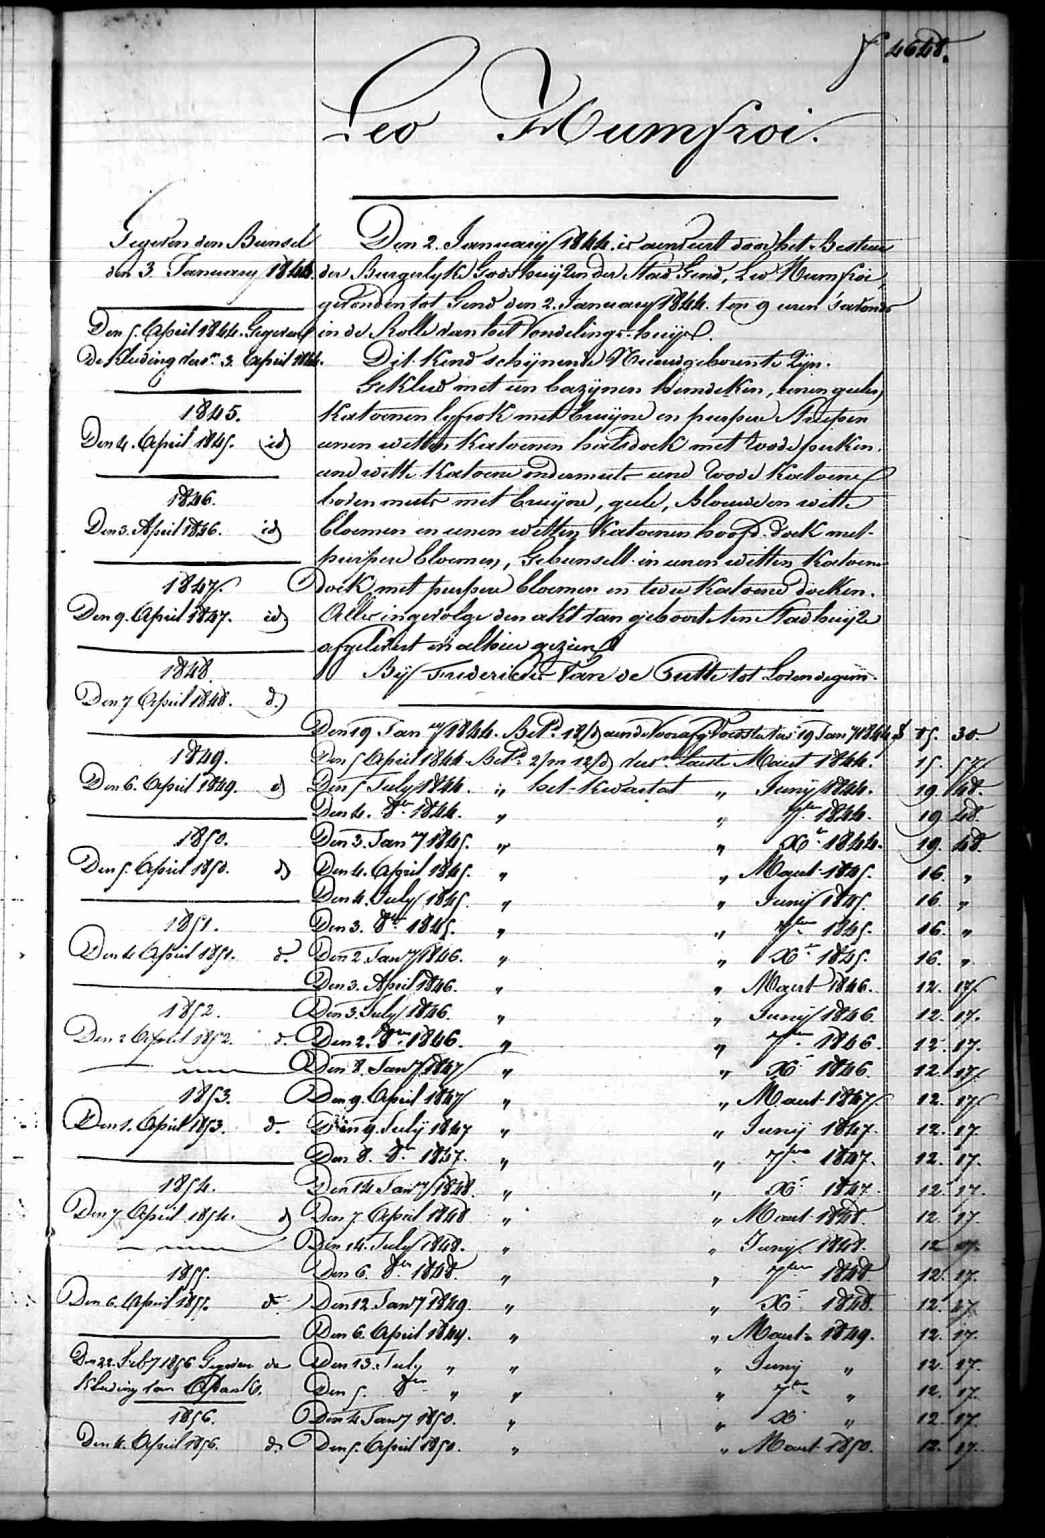 f 4648.
Leo Humfroi.
Gegeven den Bunsel
den 3. January 1844.
Den 5. April 1844. Gegeven
De Kleeding 3. April 1844.
1845.
Den 4. April 1845. id
1846.
Den 3. April 1846. id
1847.
Den 9. April 1847. id
1848.
Den 7 April 1848. d.
1849.
Den 6. April 1849. d
1850.
Den 5. April 1850. d
1851.
Den 4 April 1851. d.
1852.
Den 2 April 1852. d.
1853.
Den 1. April 1853. d.
1854.
Den 7 April 1854. d
1855.
Den 6. April 1855. d.
Den 22. Feby 1856 Gegeven de
Kleeding
1856.
Den 4. April 1856. d
Den 2. January 1844. is door het Bestuur
der Burgerlyke Godshuyzen der Stad Gend, Leo Humfroi,
gevonden tot Gend den 2. January 1844. ten 9 uren s'avonds
in de Rolle van het Vondelings-huys.
Dit Kind schynende Nieuwgeboren te Zyn.
Gekleed met een bazynen hemdeken, eenen geelen
Katoenen lyfrok met bruyne en purpere streepen
eenen witten Katoenen halsdoek met roode perken.
eene witte Katoene ondermuts eene roode Katoene
bovenmuts met bruyne, geele, Blauwe en witte
bloemen en eenen witten Katoenen hoofd-doek met
purpere bloemen, Gebunselt in eenen witten Katoene
doek met purpere bloemen en twee Katoene doeken.
Alles ingevolge den akt van geboorte ten Stadhuyze
afgelevert en alhier gezien
By Frederic Van de Putte tot Lovendegem.
Den 19 Jany 1844. Betd. 12/ 19 Jany 1844 f 15. 30.
Den 5 April 1844 Betd. 2/m 12/d Maart 1844. 15. 57
Den 5 July 1844. " het Kwartal " Juny 1844. 19. 48.
Den 4. 8br 1844. " " 7br 1844. 19 48.
Den 3. Jany 1845. " " Xr 1844. 19. 48.
Den 4. April 1845. " " Maart 1845. 16. "
Den 4. July 1845. " " Juny 1845. 16. "
Den 3. 8br 1845. " " 7ber 1845. 16. "
Den 2 Jany 1846. " " Xr 1845. 16. "
Den 3. April 1846. " " Maert 1846. 12. 17
Den 3. July 1846. " " Juny 1846. 12. 17.
Den 2. 8ber 1846. " " 7ber 1846. 12. 17.
Den 8. Jany 1847 " " Xr 1846 12. 17.
Den 9. April 1847 " " Maart 1847 12. 17
Den 9. July 1847 " " Juny 1847. 12. 17.
Den 8. 8br 1847. " " 7bre 1847. 12. 17.
Den 14 Jany 1848. " " Xr 1847. 12 17.
Den 7. April 1848 " " Maart 1848. 12. 17
Den 14. July 1848. " " Juny. 1848. 12 17.
Den 6. 8br 1848. " " 7ber 1848. 12. 17.
Den 12 Jany 1849. " " Xr 1848. 12. 17.
Den 6. April 1849. " " Maart 1849. 12. 17.
Den 13. July " " " Juny " 12. 17.
Den 5. 8br " " " 7br " 12. 17.
Den 4 Jany 1850. " " Xr " 12. 17.
Den 5. April 1850. " " Maart 1850. 12. 17.